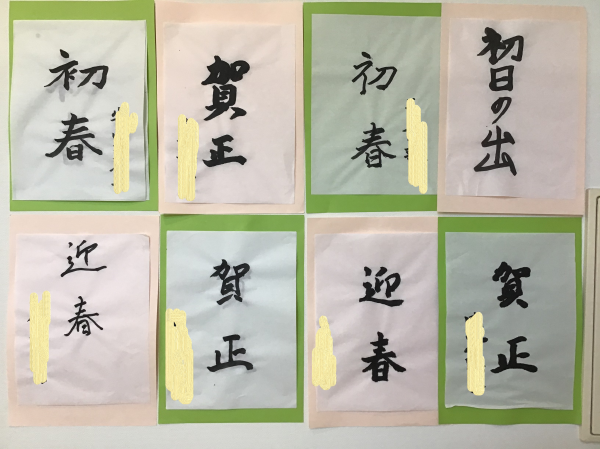 初春
賀正
初春
初日の出
迎春
賀正
迎春
賀正